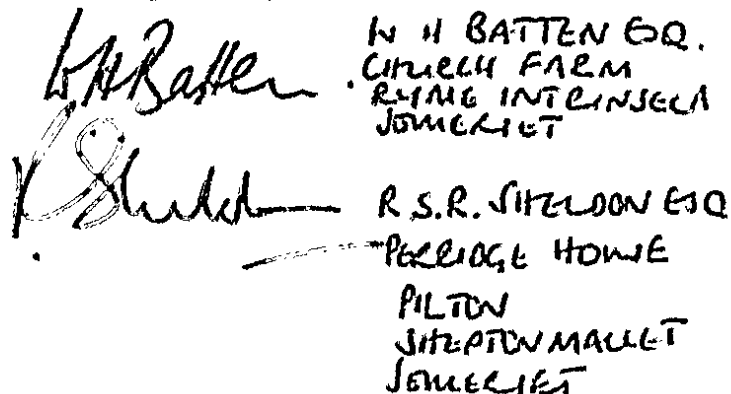 W H Batten
W H BATTEN ESQ.
CHURCH FARM
RYME INTRINSECA
SOMERSET
R. Sheldon
R.S.R. SHELDON ESQ
PERRIDGE HOUSE
PILTON
SHEPTON MALLET
SOMERSET